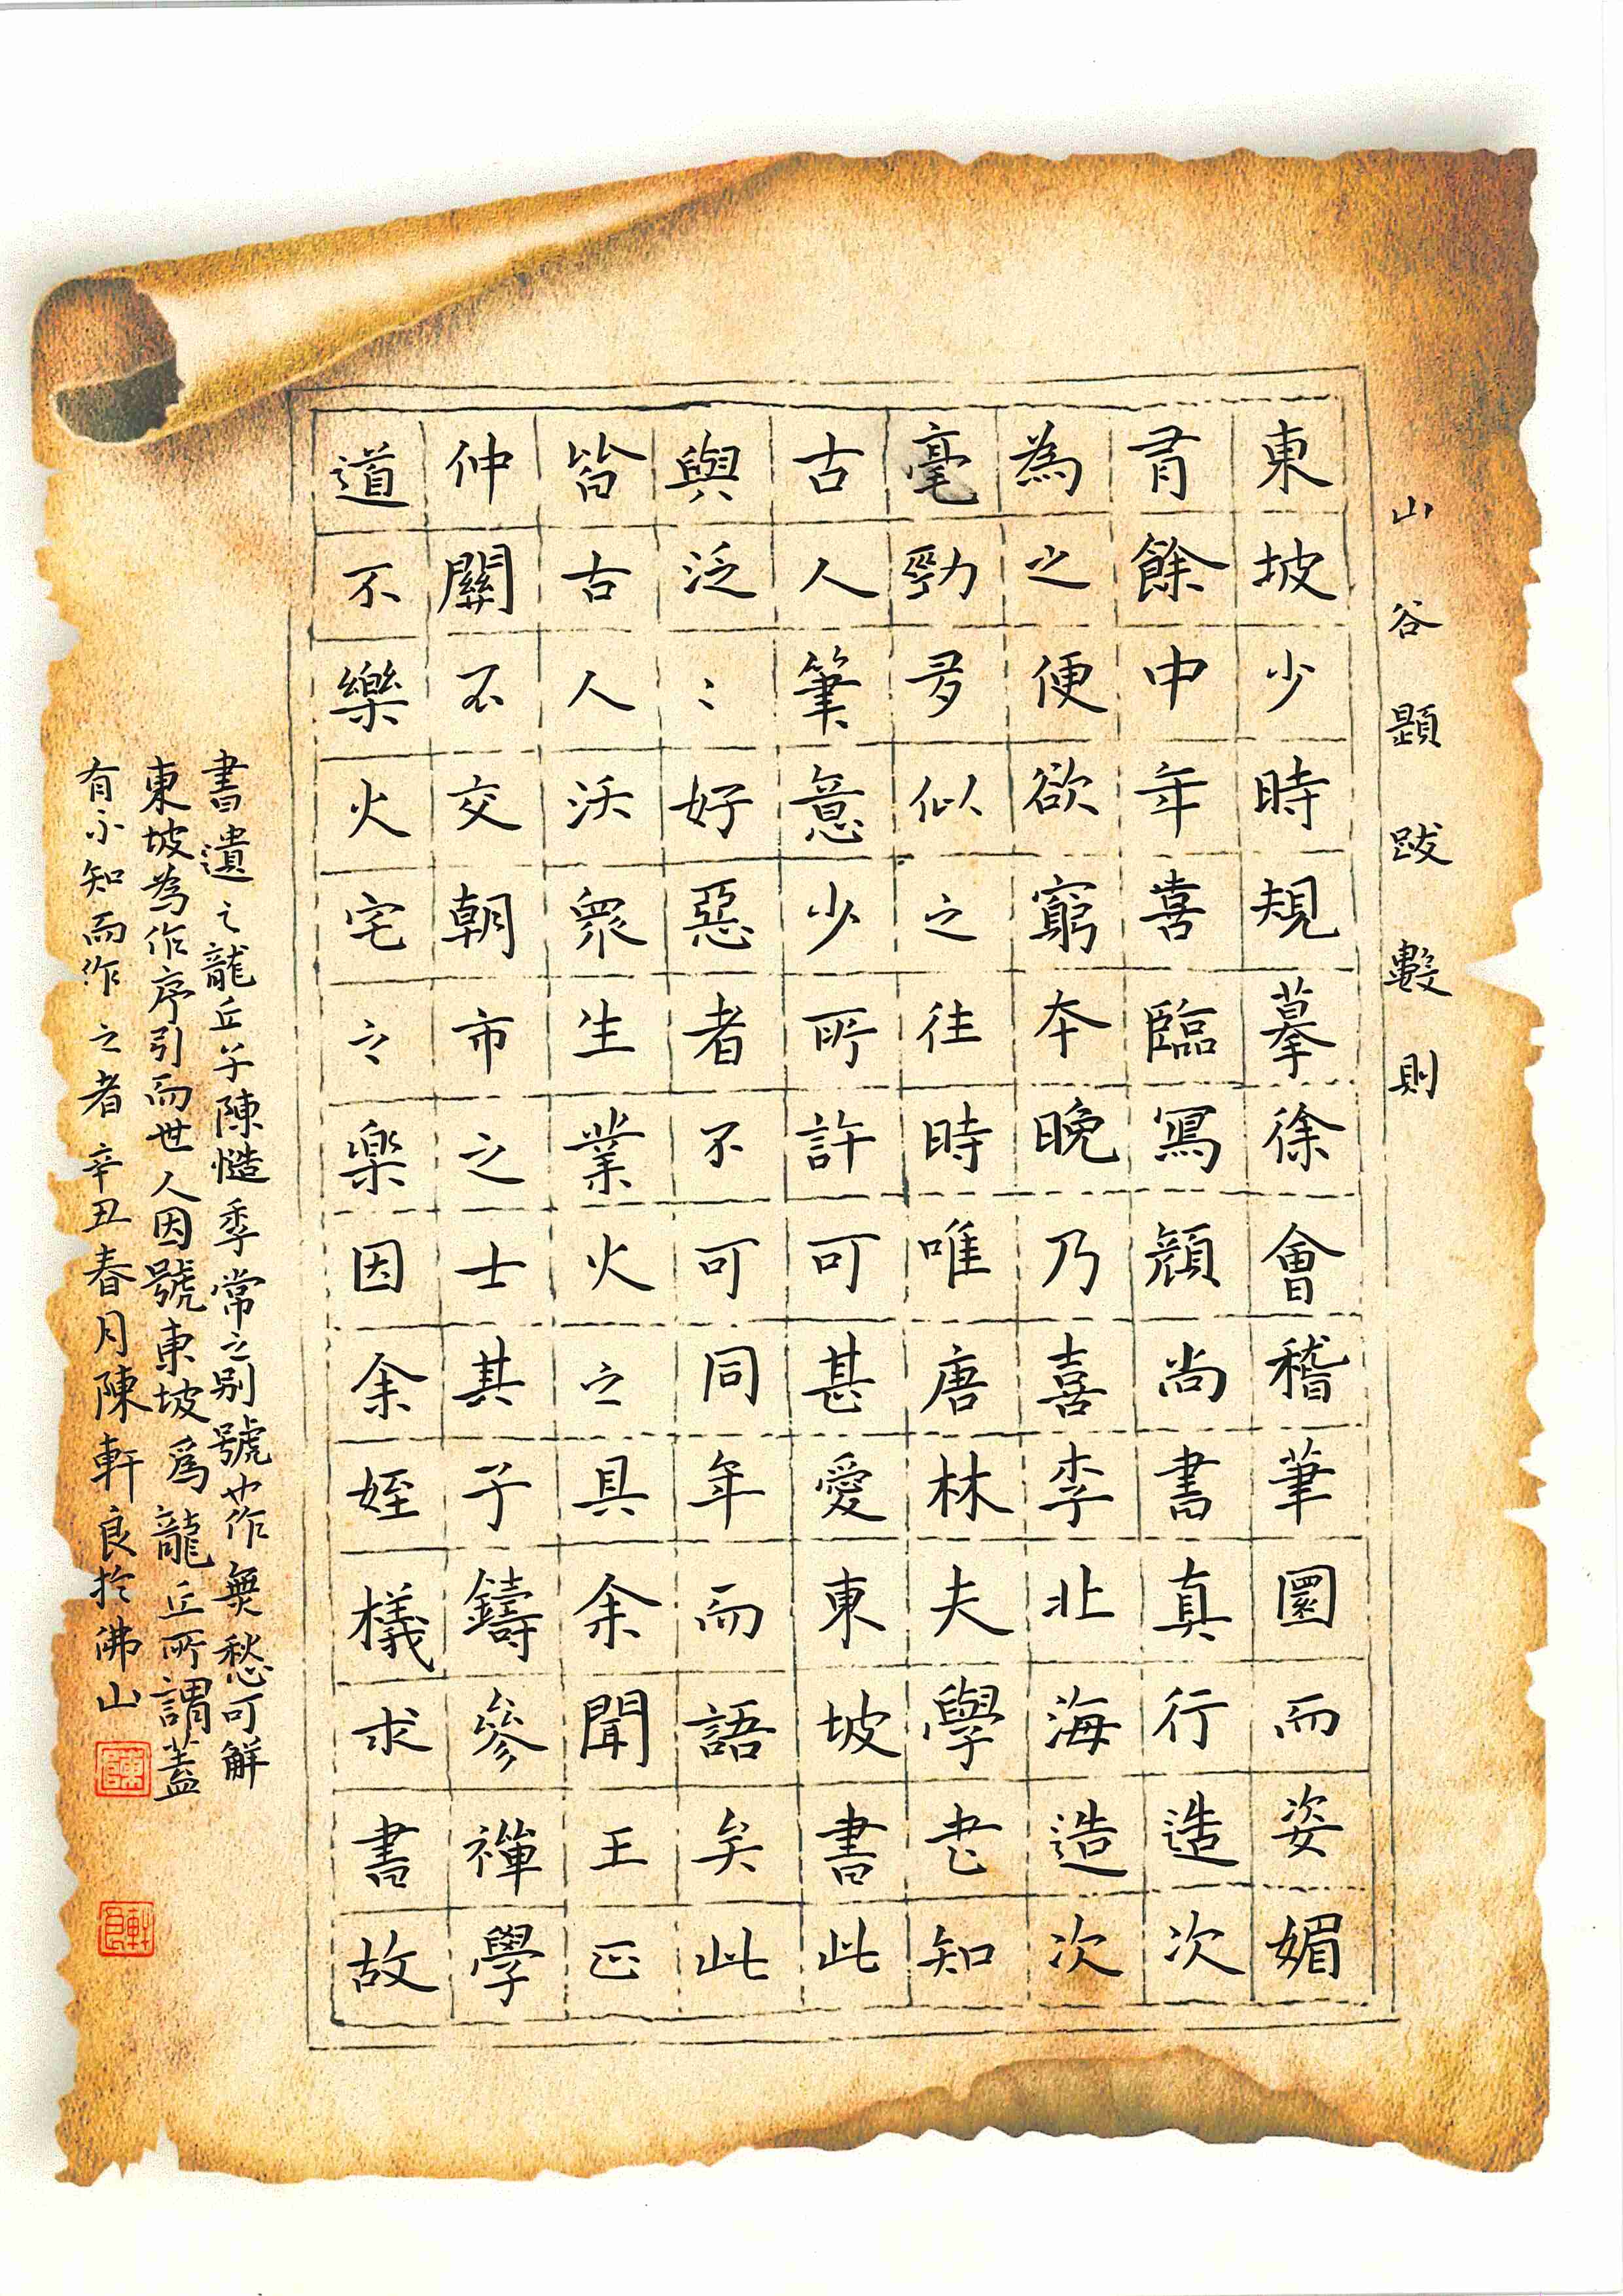 山谷題跋數則
東坡少時規摹徐會稽筆圜而姿媚
有餘中年喜臨寫顔尚書真行造次
為之便欲窮本晚乃喜李北海造次
毫勁多似之往時唯唐林夫學書知
古人筆意少所許可甚愛東坡書此
與泛泛好惡者不可同年而語矣此
皆古人沃衆生業火之具余聞王正
仲關不交朝市之士其子鑄參禪學
道不樂火宅之樂因余姪檥求書故
書遺之龍丘子陳慥季常之别號也作無愁可解
東坡為作序引而世人因號東坡爲龍丘所謂蓋
有不知而作之者 辛丑春月陳軒良於佛山